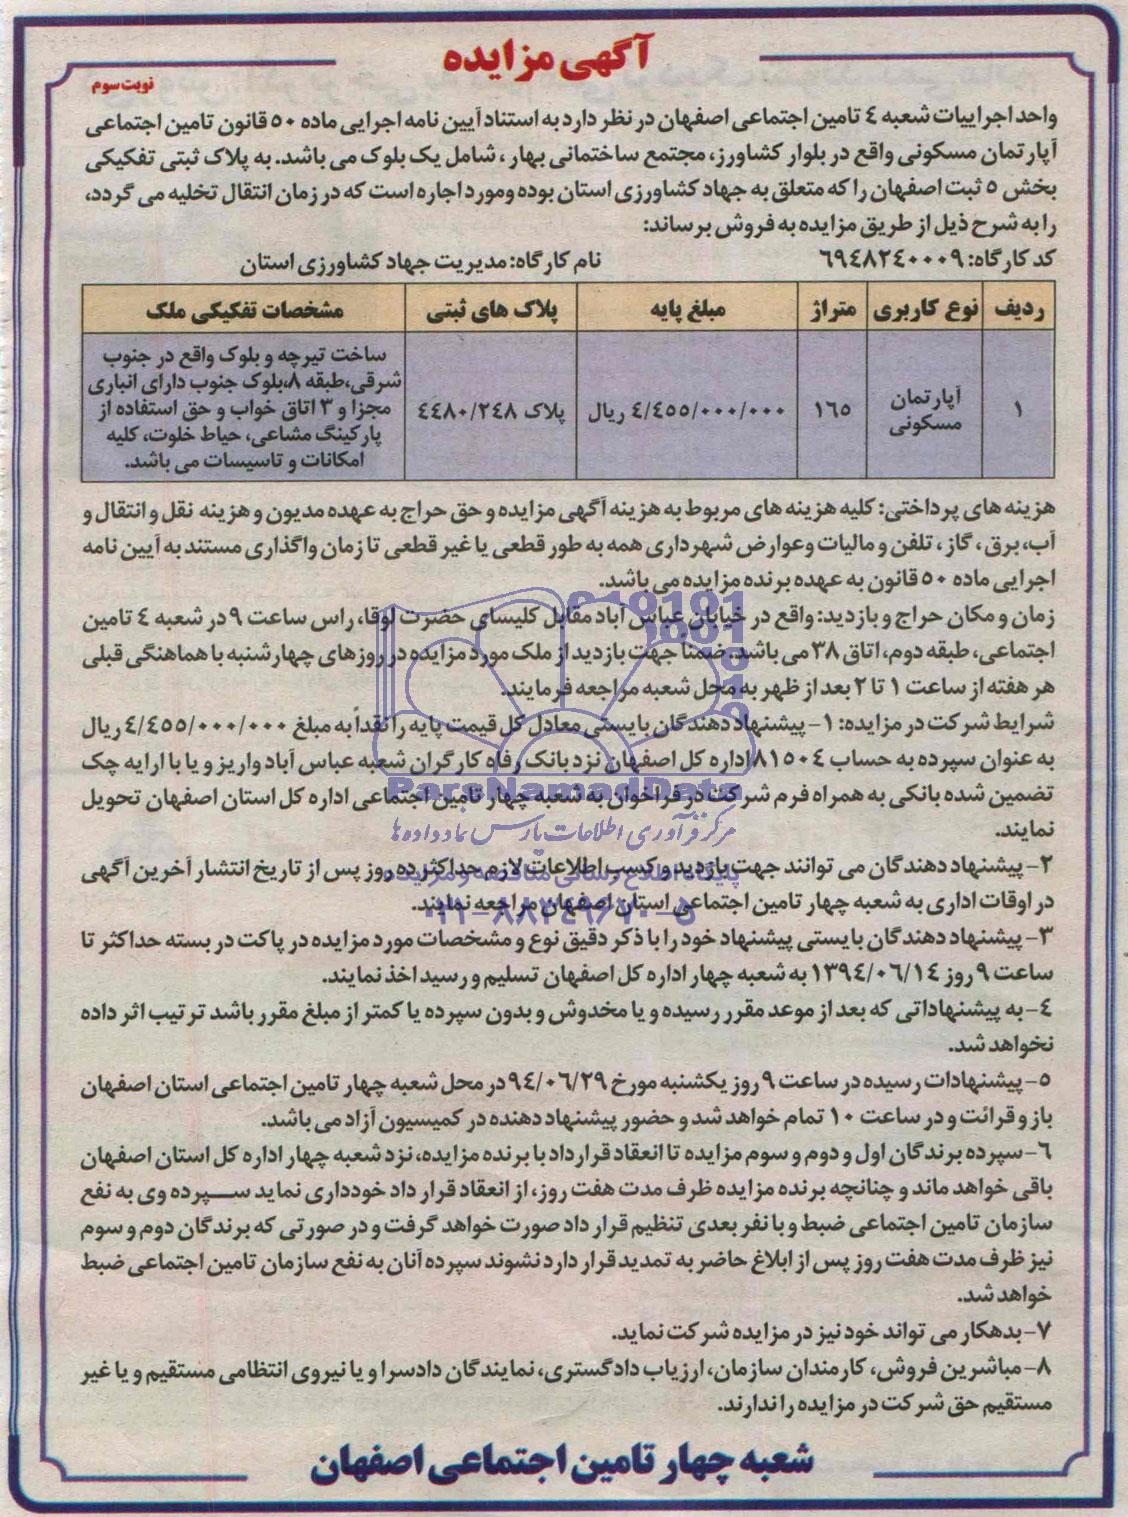 آگهی مزایده
نوبت سوم
واحد اجراییات شعبه ٤ تامین اجتماعی اصفهان در نظر دارد به استناد آیین نامه اجرایی ماده ٥٠ قانون تامین اجتماعی
آپارتمان مسکونی واقع در بلوار کشاورز، مجتمع ساختمانی بهار ، شامل یک بلوک می باشد. به پلاک ثبتی تفکیکی
بخش ٥ ثبت اصفهان را که متعلق به جهاد کشاورزی استان بوده ومورد اجاره است که در زمان انتقال تخلیه می گردد،
را به شرح ذیل از طریق مزایده به فروش برساند:
کد کارگاه: ٦٩٤٨٢٤٠٠٠٩ نام کارگاه: مدیریت جهاد کشاورزی استان
ردیف نوع کاربری متراژ مبلغ پایه پلاک های ثبتی مشخصات تفکیکی ملک
١ آپارتمان مسکونی ١٦٥ ٤/٤٥٥/٠٠٠/٠٠٠ ریال پلاک ٤٤٨٠/٢٤٨
ساخت تیرچه و بلوک واقع در جنوب
شرقی،طبقه ٨،بلوک جنوب دارای انباری
مجزا و ٣ اتاق خواب و حق استفاده از
پارکینگ مشاعی، حیاط خلوت، کلیه
امکانات و تاسیسات می باشد.
هزینه های پرداختی: کلیه هزینه های مربوط به هزینه آگهی مزایده و حق حراج به عهده مدیون و هزینه نقل و انتقال و
آب، برق ، گاز ، تلفن و مالیات و عوارض شهرداری همه به طور قطعی یا غیر قطعی تا زمان واگذاری مستند به آیین نامه
اجرایی ماده ٥٠ قانون به عهده برنده مزایده می باشد.
زمان و مکان حراج و بازدید: واقع در خیابان عباس آباد مقابل کلیسای حضرت لوقا، راس ساعت ٩ در شعبه ٤ تامین
اجتماعی، طبقه دوم، اتاق ٣٨ می باشد. ضمناً جهت بازدید از ملک مورد مزایده در روزهای چهارشنبه با هماهنگی قبلی
هر هفته از ساعت ١ تا ٢ بعد از ظهر به محل شعبه مراجعه فرمایند.
شرایط شرکت در مزایده: ١- پیشنهاد دهندگان بایستی معادل کل قیمت پایه را نقداً به مبلغ ٤/٤٥٥/٠٠٠/٠٠٠ ریال
به عنوان سپرده به حساب ٨١٥٠٤ اداره کل اصفهان نزد بانک رفاه کارگران شعبه عباس آباد واریز و یا با ارایه چک
تضمین شده بانکی به همراه فرم شرکت در فراخوان به شعبه چهار تامین اجتماعی اداره کل استان اصفهان تحویل
نمایند.
٢- پیشنهاد دهندگان می توانند جهت بازدید و کسب اطلاعات لازم حداکثر ده روز پس از تاریخ انتشار آخرین آگهی
در اوقات اداری به شعبه چهار تامین اجتماعی استان اصفهان مراجعه نمایند.
٣- پیشنهاد دهندگان بایستی پیشنهاد خود را با ذکر دقیق نوع و مشخصات مورد مزایده در پاکت در بسته حداکثر تا
ساعت ٩ روز ١٣٩٤/٠٦/١٤ به شعبه چهار اداره کل اصفهان تسلیم و رسید اخذ نمایند.
٤- به پیشنهاداتی که بعد از موعد مقرر رسیده و یا مخدوش و بدون سپرده یا کمتر از مبلغ مقرر باشد ترتیب اثر داده
نخواهد شد.
٥- پیشنهادات رسیده در ساعت ٩ روز یکشنبه مورخ ٩٤/٠٦/٢٩ در محل شعبه چهار تامین اجتماعی استان اصفهان
باز و قرائت و در ساعت ١٠ تمام خواهد شد و حضور پیشنهاد دهنده در کمیسیون آزاد می باشد.
٦- سپرده برندگان اول و دوم و سوم مزایده تا انعقاد قرارداد با برنده مزایده، نزد شعبه چهار اداره کل استان اصفهان
باقی خواهد ماند و چنانچه برنده مزایده ظرف مدت هفت روز، از انعقاد قرار داد خودداری نماید ســپرده وی به نفع
سازمان تامین اجتماعی ضبط و با نفر بعدی تنظیم قرار داد صورت خواهد گرفت و در صورتی که برندگان دوم و سوم
نیز ظرف مدت هفت روز پس از ابلاغ حاضر به تمدید قرار دارد نشوند سپرده آنان به نفع سازمان تامین اجتماعی ضبط
خواهد شد.
٧- بدهکار می تواند خود نیز در مزایده شرکت نماید.
٨- مباشرین فروش، کارمندان سازمان، ارزیاب دادگستری، نمایندگان دادسرا و یا نیروی انتظامی مستقیم و یا غیر
مستقیم حق شرکت در مزایده را ندارند.
شعبه چهار تامین اجتماعی اصفهان
ParsNamadData
مرکز فرآوری اطلاعات پارس نماد داده ها
پایگاه اطلاع رسانی مناقصه و مزایده
٠٢١-٨٨٣٤٩٦٧٠-٥